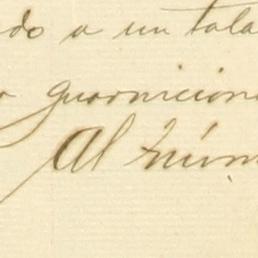 do a un tala
guarnicion
Al